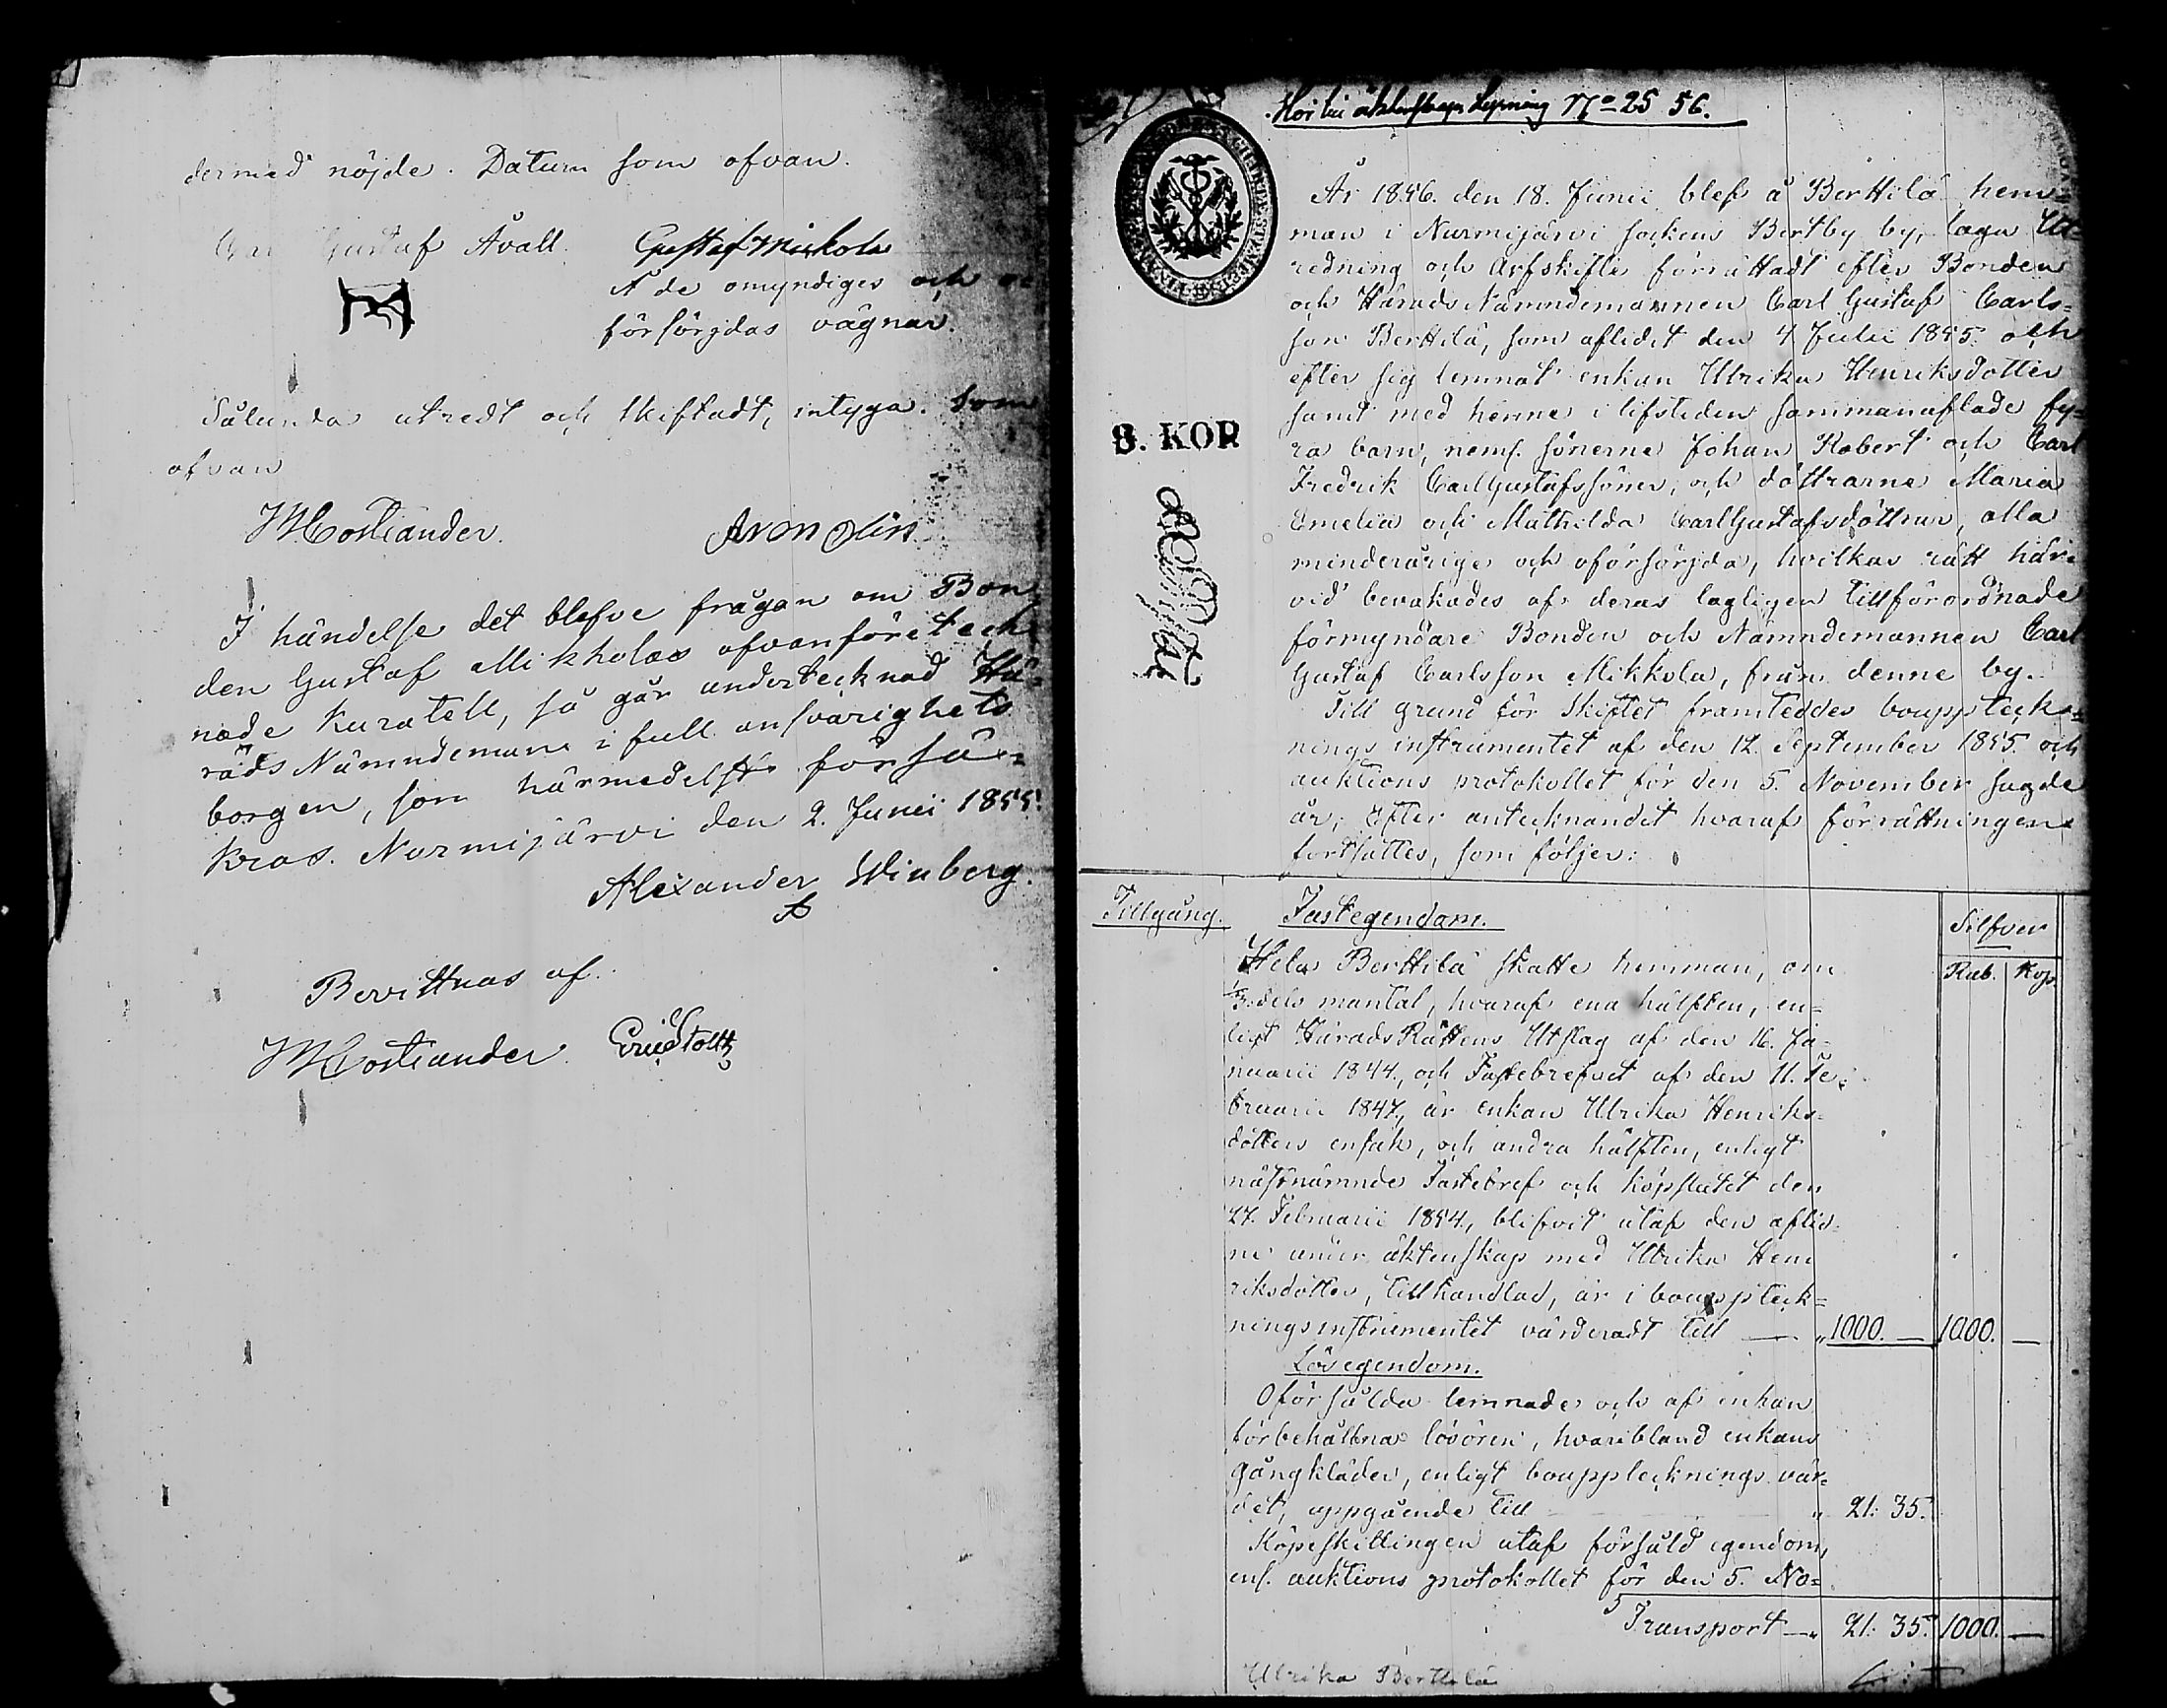 dermed nöjde. Datum som ofvan.
Gustaf Åvall. Gustaf Mickola
Å de omyndiges och
försörjdas vägnar.
Sålunda utredt och skiftadt, intyga. Som
ofvan
I händelse det blefve frågan om Bon-
den Gustaf Mikholas ofvanföreteck-
nade Kuratell, så går undertecknad Hä-
rads Nämndeman i full ansvarighets
borgen, som härmedelst försä-
kras. Nurmijärvi den 2. Junii 1855.
Alexander Winberg.
Bevittnas af.
Hör till N:o 25 56.
År 1856. den 18. Junii blef å Berttilä hem-
man i Nurmijärvi sockens Bertby by, laga Ut-
redning och Arfskifte förrättadt efter Bonden
och Härads Nämndemannen Carl Gustaf Carls-
son Berttilä, som aflidit den 4 Julii 1855. och
efter sig lemnat enkan Ulrika Henriksdotter
samt med henne i lifstiden sammanaflade fy-
ra barn, neml. sönerne Johan Robert och Carl
Fredrik Carl Gustafssöner, och döttrarne Maria
Emelia och Mathilda Carl Gustafsdöttrar, alla
minderårige och oförsörjda, hvilkas rätt här-
vid bevakades af deras lagligen tillförordnade
förmyndare Bonden och Nämndemannen Carl
Gustaf Carlsson Mikkola, från denne by.
Till grund för Skiftet framteddes bouppteck-
nings instrumentet af den 12. September 1855. och
auktions protokollet för den 5. November sagde
år, Efter antecknandet hvaraf förrättningen
fortsattes, som följer:
8. KOP
Tillgång. Fastegendom. Silfver
Rub. Kop.
Hela Berttilä Skatte hemman, om
1/3:dels mantal, hvaraf ena hälften, en-
ligt Härads Rättens Utslag af den 16. Ja-
nuarii 1844., och Fastebrefvet af den 11. Fe-
bruarii 1847., är enkan Ulrika Henriks-
dotters ensak, och andra hälften, enligt
näst nämnde Fastebref och köpslutet den
27. Februarii 1854., blifvit utaf den aflid-
ne under äktenskap med Ulrika Hen-
riksdotter, tillhandlad, är i bouppteck-
ningsinstrumentet värderadt till — „ 1000. — 1000. —
Lösegendom.
Oförsålda lemnade och af enkan
förbehållna lösören, hvaribland enkans
gångkläder, enligt boupptecknings vär-
det, uppgående till „ 21: 35.
Köpeskillingen utaf försåld egendom,
enl. auktions protokollet för den 5. No-
Transport —„ 21: 35. 1000. —
Ulrika Berttilä